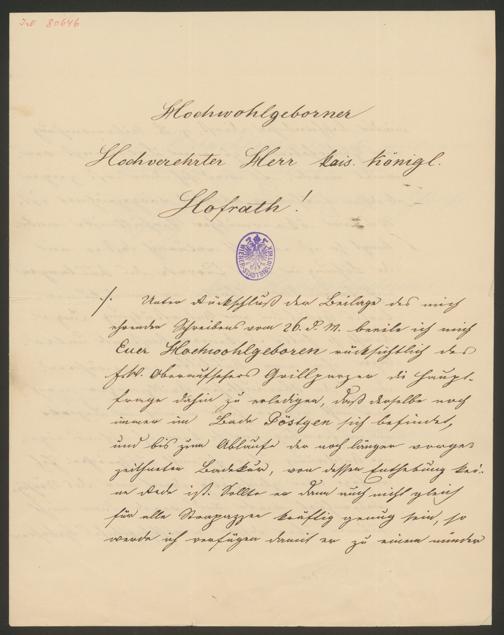 IN 80646
Hochwohlgeborner
Hochverehrter Herr kais. königl.
Hofrath!
./. Unter Rückschluß der Beilage des mich
ehrenden Schreibens vom 26. d. M. beeile ich mich
Euer Hochwohlgeboren rücksichtlich des
Oberaufsehers Grillparzer die Haupt-
frage dahin zu erledigen, daß derselbe noch
immer im Bade Pöstgen sich befindet,
und bis zum Ablaufe der noch länger vorge-
zeichneten Badekur, von dessen Enthebung kei-
ne Rede ist. Sollte er dann auch nicht gleich
für alle Strapazzen kräftig genug sein, so
werde ich verfügen damit er zu einem minder